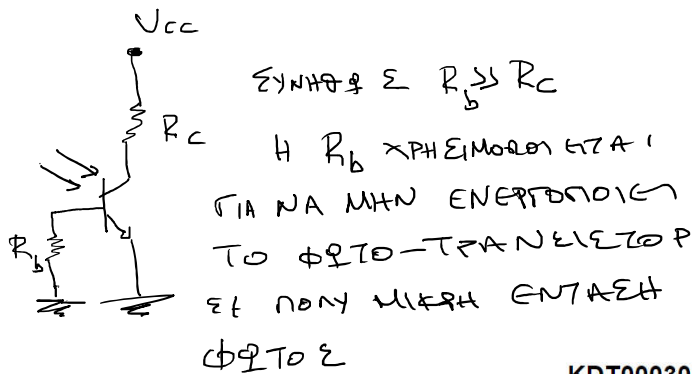 Vcc
ΣΥΝΗΘΩΣ Rb >> Rc
Rc
Η Rb ΧΡΗΣΙΜΟΠΟΙΕΙΤΑΙ
ΓΙΑ ΝΑ ΜΗΝ ΕΝΕΡΓΟΠΟΙΕΙ
Rb
ΤΟ ΦΩΤΟ-ΤΡΑΝΣΙΣΤΟΡ
ΣΕ ΠΟΛΥ ΜΙΚΡΗ ΕΝΤΑΣΗ
ΦΩΤΟΣ
KDT00030